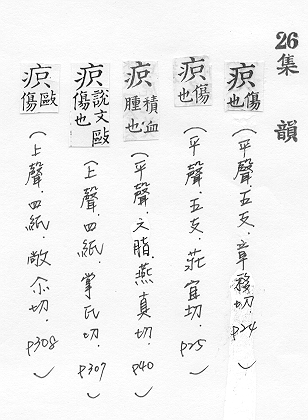 26集 韻
疻 傷也 (平聲.五支.章移切.P24)
疻 傷也 (平聲.五支.莊宜切.P25)
疻 積血腫也 (平聲.六脂.真切.P40)
疻 說文毆傷也 (上聲.四紙.掌氏切.P307)
疻 毆傷 (上聲.四紙.敞尒切.P308)